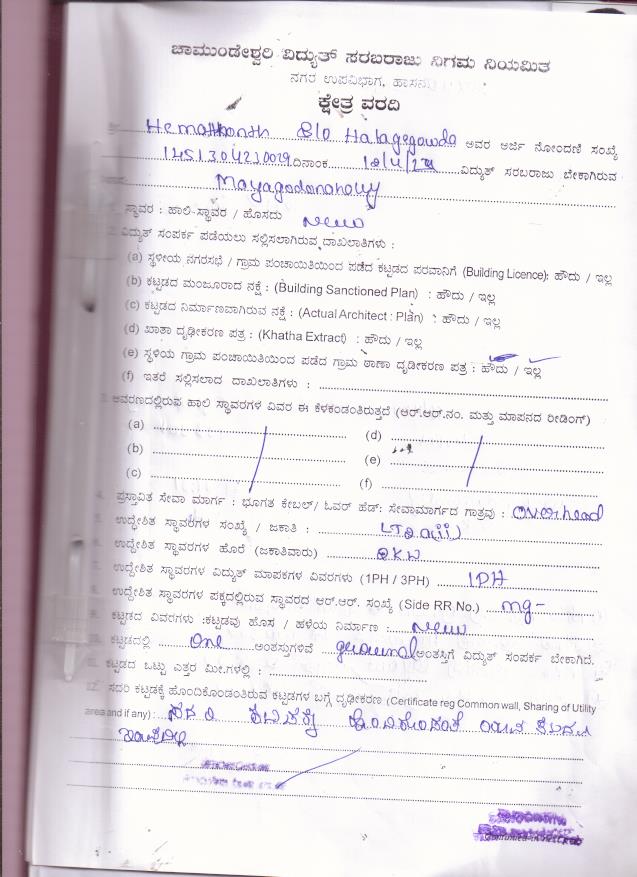 ಚಾಮುಂಡೇಶ್ವರಿ ವಿದ್ಯುತ್ ಸರಬರಾಜು ನಿಗಮ ನಿಯಮಿತ
ನಗರ ಉಪವಿಭಾಗ, ಹಾಸನ
ಕ್ಷೇತ್ರ ವರದಿ
S/o Halagegowda ಅವರ ಅರ್ಜಿ ನೋಂದಣಿ ಸಂಖ್ಯೆ
ದಿನಾಂಕ ವಿದ್ಯುತ್ ಸರಬರಾಜು ಬೇಕಾಗಿರುವ
1. ಸ್ಥಾವರ : ಹಾಲಿ-ಸ್ಥಾವರ / ಹೊಸದು New
2. ವಿದ್ಯುತ್ ಸಂಪರ್ಕ ಪಡೆಯಲು ಸಲ್ಲಿಸಲಾಗಿರುವ ದಾಖಲಾತಿಗಳು :
(a) ಸ್ಥಳೀಯ ನಗರಸಭೆ / ಗ್ರಾಮ ಪಂಚಾಯಿತಿಯಿಂದ ಪಡೆದ ಕಟ್ಟಡದ ಪರವಾನಿಗೆ (Building Licence): ಹೌದು / ಇಲ್ಲ
(b) ಕಟ್ಟಡದ ಮಂಜೂರಾದ ನಕ್ಷೆ : (Building Sanctioned Plan) : ಹೌದು / ಇಲ್ಲ
(c) ಕಟ್ಟಡದ ನಿರ್ಮಾಣವಾಗಿರುವ ನಕ್ಷೆ : (Actual Architect : Plan) : ಹೌದು / ಇಲ್ಲ
(d) ಖಾತಾ ದೃಢೀಕರಣ ಪತ್ರ : (Khatha Extract) : ಹೌದು / ಇಲ್ಲ
(e) ಸ್ಥಳೀಯ ಗ್ರಾಮ ಪಂಚಾಯಿತಿಯಿಂದ ಪಡೆದ ಗ್ರಾಮ ಠಾಣಾ ದೃಢೀಕರಣ ಪತ್ರ : ಹೌದು / ಇಲ್ಲ
(f) ಇತರೆ ಸಲ್ಲಿಸಲಾದ ದಾಖಲಾತಿಗಳು :
3. ಆವರಣದಲ್ಲಿರುವ ಹಾಲಿ ಸ್ಥಾವರಗಳ ವಿವರ ಈ ಕೆಳಕಂಡಂತಿರುತ್ತದೆ (ಆರ್.ಆರ್.ನಂ. ಮತ್ತು ಮಾಪನದ ರೀಡಿಂಗ್)
(a) (d)
(b) (e)
(c) (f)
4. ಪ್ರಸ್ತಾವಿತ ಸೇವಾ ಮಾರ್ಗ : ಭೂಗತ ಕೇಬಲ್/ ಓವರ್ ಹೆಡ್: ಸೇವಾಮಾರ್ಗದ ಗಾತ್ರವು : Overhead
5. ಉದ್ಧೇಶಿತ ಸ್ಥಾವರಗಳ ಸಂಖ್ಯೆ / ಜಕಾತಿ :
6. ಉದ್ದೇಶಿತ ಸ್ಥಾವರಗಳ ಹೊರೆ (ಜಕಾತಿವಾರು)
7. ಉದ್ದೇಶಿತ ಸ್ಥಾವರಗಳ ವಿದ್ಯುತ್ ಮಾಪಕಗಳ ವಿವರಗಳು (1PH / 3PH) 1PH
8. ಉದ್ದೇಶಿತ ಸ್ಥಾವರಗಳ ಪಕ್ಕದಲ್ಲಿರುವ ಸ್ಥಾವರದ ಆರ್.ಆರ್. ಸಂಖ್ಯೆ (Side RR No.) mg-
9. ಕಟ್ಟಡದ ವಿವರಗಳು :ಕಟ್ಟಡವು ಹೊಸ / ಹಳೆಯ ನಿರ್ಮಾಣ : New
10. ಕಟ್ಟಡದಲ್ಲಿ One ಅಂತಸ್ತುಗಳಿವೆ ಅಂತಸ್ತಿಗೆ ವಿದ್ಯುತ್ ಸಂಪರ್ಕ ಬೇಕಾಗಿದೆ.
11. ಕಟ್ಟಡದ ಒಟ್ಟು ಎತ್ತರ ಮೀ.ಗಳಲ್ಲಿ :
12. ಸದರಿ ಕಟ್ಟಡಕ್ಕೆ ಹೊಂದಿಕೊಂಡಂತಿರುವ ಕಟ್ಟಡಗಳ ಬಗ್ಗೆ ದೃಢೀಕರಣ (Certificate reg Common wall, Sharing of Utility
area and if any) :